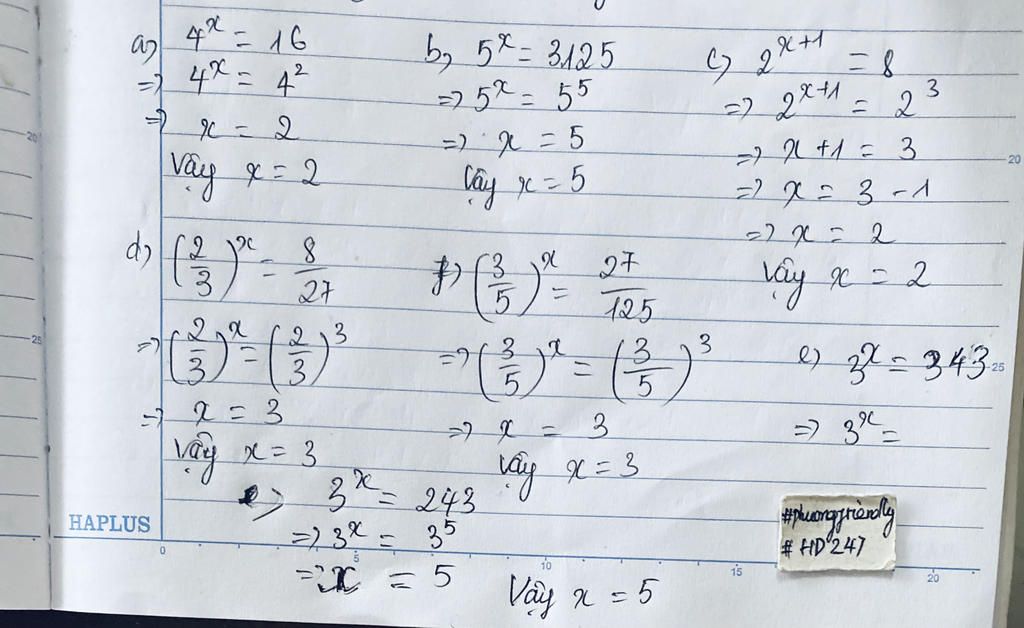 a) 4^x = 16
=> 4^x = 4^2
=> x = 2
Vậy x = 2
b) 5^x = 3125
=> 5^x = 5^5
=> x = 5
Vậy x = 5
c) 2^{x+1} = 8
=> 2^{x+1} = 2^3
=> x+1 = 3
=> x = 3 - 1
=> x = 2
Vậy x = 2
d) (2/3)^x = 8/27
=> (2/3)^x = (2/3)^3
=> x = 3
Vậy x = 3
f) (3/5)^x = 27/125
=> (3/5)^x = (3/5)^3
=> x = 3
Vậy x = 3
e) 3^x = 343
=> 3^x =
e) 3^x = 243
=> 3^x = 3^5
=> x = 5 Vậy x = 5
#phuongfriendly
# HD 247
HAPLUS
0 5 10 15 20
20
25
20
25